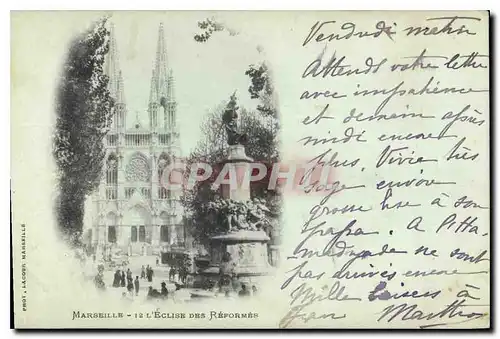 Vendredi matin
Attends votre lettre
avec impatience
et demain après
midi encore
plus. Vivie très
sage envoie
grosse bise à son
papa. A
ne sont
pas arrivés encore
Mille baisers à
CARTE POSTALE
MARSEILLE - 12 L'ÉGLISE DES RÉFORMÉS
PHOT. LACOUR, MARSEILLE